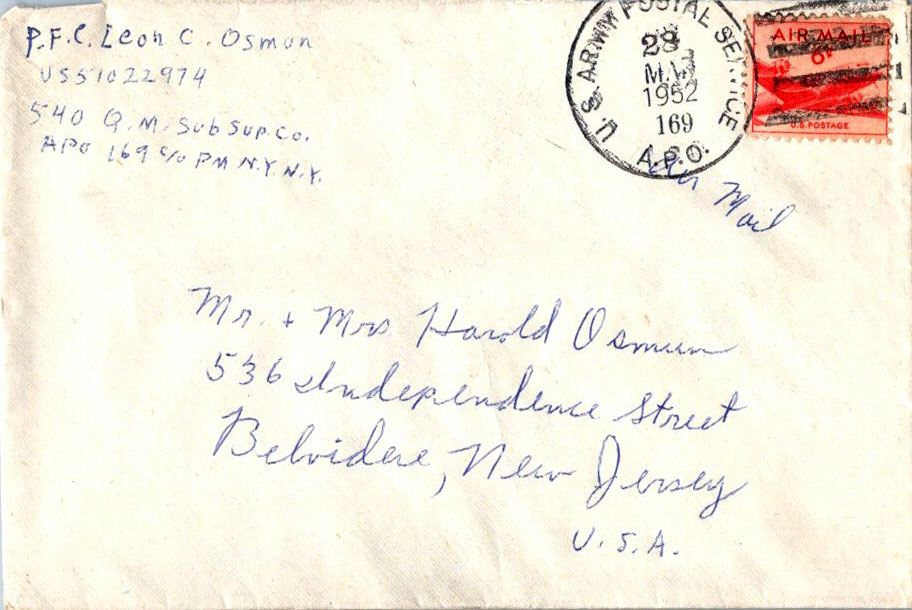 P.F.C. Leon C. Osmun
US51022974
540 Q.M. Sub Sup. Co.
APO 169 c/o PM N.Y. N.Y.
U.S. ARMY POSTAL SERVICE
28
1952
169
A.P.O.
AIR MAIL
6¢
U.S. POSTAGE
Air Mail
Mr. + Mrs Harold Osmun
536 Independence Street
Belvidere, New Jersey
U.S.A.